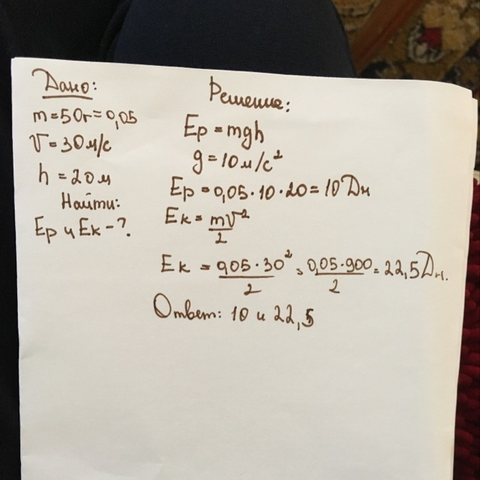 Дано:
m=50г=0,05
V=30м/с
h=20м
Найти:
Eр и Ек-?
Решение:
Eр=mgh
g=10м/с²
Eр=0,05·10·20=10Дж
Eк=mV²/2
Eк=0,05·30²/2=0,05·900/2=22,5Дж.
Ответ: 10 и 22,5